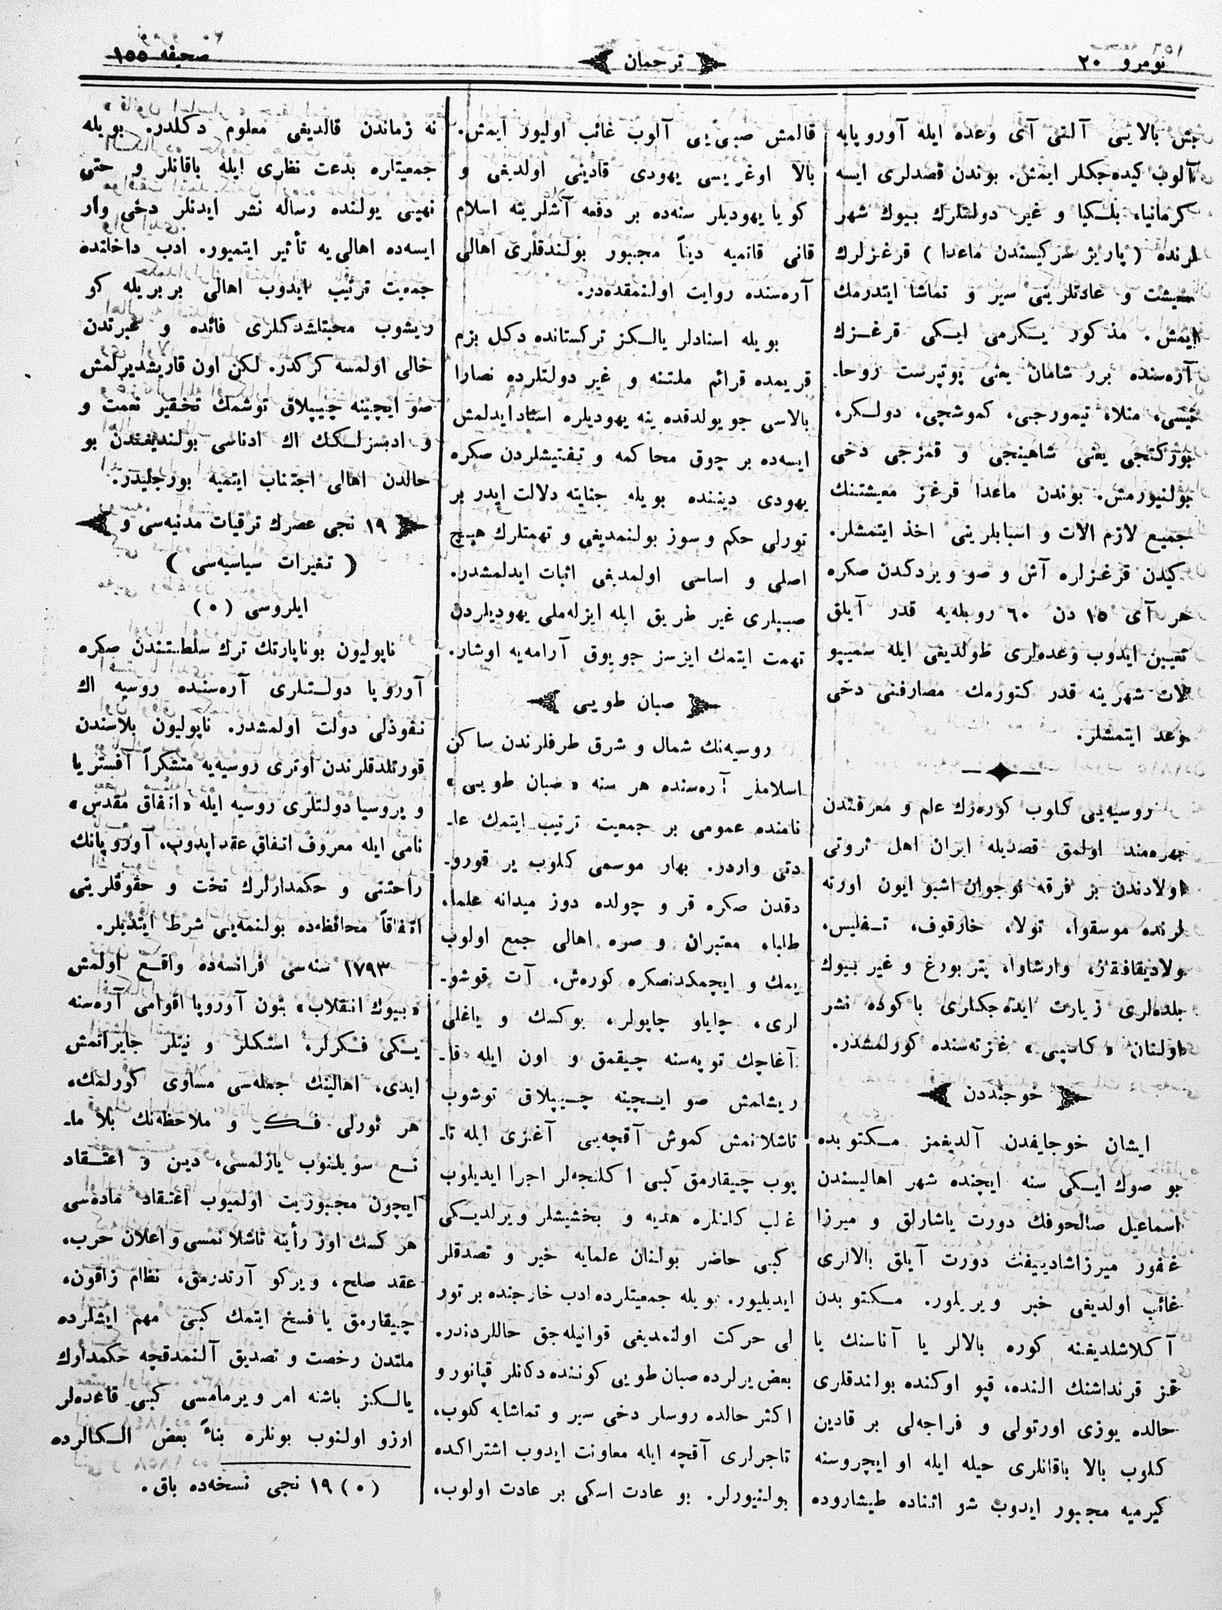 نومرو ٢٠
ترجمان
صحيفه ١٥٥
بش بالايى آلتى آى وعده ايله آوروپايه
آلوب كيده‌جكلر ايمش. بوندن قصدلرى ايسه
كرمانيا، بلـكيا و غير دولتلرك بيوك شهر
لرنده (پاريژ سركيسندن ماعدا) قرغزلرك
معيشت و عادتلرينى سير و تماشا ايتدرمك
ايمش. مذكور يـكرمى ايـكى قرغـزك
آره‌سنده برر شامان يعنى بوتپرست روحا-
نيسى، منلا، تيمورجى، كموشچى، دولـكر،
بوركتجى يعنى شاهينجى و قمزجى دخى
بولنيورمش. بوندن ماعدا قرغز معيشتنك
جميع لازم الات و اسبابلرينى اخذ ايتمشلر.
كيدن قرغزلره آش و صو ويردكدن صكره
هر آى ١٥ دن ٦٠ روبله‌يه قدر آيلق
تعيين ايدوب وعده‌لرى طولديغى ايله سميپو
لات شهرينه قدر كتورمك مصارفنى دخى
وعد ايتمشلر.
روسيه‌يى كلوب كوره‌رك علم و معرفتدن
بهره‌مند اولمق قصديله ايران اهل ثروتى
اولادندن بر فرقه نوجوان اشبو ايون اورته
لرنده موسقوا، تولا، خارقوف، تـفليس،
ولاديقافقاز، وارشاوا، پتربورغ و غير بيوك
بلده‌لرى زيارت ايده‌جكلرى باكوده نشر
اولنان «كاسپى» غزته‌سنده كورلمشدر.
خوجنددن
ايشان خوجايفدن آلديغمز مـكتوبده
بو صوك ايـكى سنه ايچنده شهر اهاليسندن
اسماعيل صالحوفك دورت ياشارلق و ميرزا
غفور ميرزاشادييفك دورت آيلق بالالرى
غائب اولديغى خبر ويريلور. مـكتوبدن
آكلاشلديغنه كوره بالالر يا آناسنك يا
قز قرنداشنك النده، قپو اوكنده بولندقلرى
حالده يوزى اورتولى و فراجه‌لى بر قادين
كلوب بالا باقانلرى حيله ايله او ايچروسنه
كيرميه مجبور ايدوب شو اثناده طيشاروده
قالمش صبى‌يى آلوب غائب اوليور ايمش.
بالا اوغريسى يهودى قادينى اولديغى و
كويا يهوديلر سنه‌ده بر دفعه آشلرينه اسلام
قانى قاتميه ديناً مجبور بولندقلرى اهالى
آره‌سنده روايت اولنمقده‌در.
بويله اسنادلر يالـكز تركستانده دكيل بزم
قريمده قرائم ملتنه و غير دولتلرده نصارا
بالاسى جويولدقده ينه يهوديلره اسنادايدلمش
ايسه‌ده بر چوق محاكمه و تفتيشلردن صكره
يهودى ديننده بويله جنايته دلالت ايدر بر
تورلى حكم و سوز بولنمديغى و تهمتلرك هيچ
اصلى و اساسى اولمديغى اثبات ايدلمشدر.
صبيلرى غير طريق ايله ايزله‌ملى يهوديلردن
تهمت ايتمك ايزسز جويوق آرامه‌يه اوشار.
صبان طويى
روسيه‌نك شمال و شرق طرفلرندن ساكن
اسلاملر آره‌سنده هر سنه «صبان طويى»
نامنده عمومى بر جمعيت ترتيب ايتمك عا-
دتى واردر. بهار موسمى كلوب ير قورو-
دقدن صكره قر و چولده دوز ميدانه علما،
طلبا، معتبران و صره اهالى جمع اولوب
يمك و ايچمكدنصكره كوره‌ش، آت قوشو-
لرى، چاپاو چاپولر، بوكسك و ياغلى
آغاچك توپه‌سنه چيقمق و اون ايله قا-
ريشلمش صو ايـچينه چـيپلاق توشوب
تاشلانمش كموش آقچه‌يى آغزى ايله تا-
پوب چيقارمق كبى اكلنجه‌لر اجرا ايديلوب
غالب كلنلره هديه و بخشيشلر ويرلديـكى
كبى حاضر بولنان علمايه خير و تصدقلر
ايديليور. بويله جمعيتلرده ادب خارجنده بر تور
لى حركت اولنمديغى قوانيله‌جق حاللردندر.
بعض يرلرده صبان طويى كوننده دكانلر قپانور و
اكثر حالده روسلر دخى سير و تماشايه كلوب،
تاجرلرى آقچه ايله معاونت ايدوب اشتراكده
بولنيورلر. بو عادت اسكى بر عادت اولوب،
نه زماندن قالديغى معلوم دكلدر. بويله
جمعيتلره بدعت نظرى ايله باقانلر و حتى
نهيى يولنده رساله نشر ايدنلر دخى وار
ايسه‌ده اهالى‌يه تأثير ايتميور. ادب داخلنده
جمعيت ترتيب ايدوب اهالى بربريله كو
ريشوب محبتلشدكلرى فائده و عبرتدن
خالى اولمسه كركدر. لكن اون قاريشديرلمش
صو ايچينه چيپلاق توشمك تحقير نعمت و
و ادبسزلـكك اك ادناسى بولنديغندن بو
حالدن اهالى اجتناب ايتميه بورجليدر.
١٩ نجى عصرك ترقيات مدنيه‌سى و
(تغيرات سياسيه‌سى)
ايلروسى (٥)
ناپوليون بوناپارتك ترك سلطنتندن صكره
آوروپا دولـتلرى آره‌سنده روسيه اك
نفوذلى دولت اولمشدر. ناپوليون بلاسندن
قورتلدقلرندن اوترى روسيه‌يه متشكراً آفستريا
و پروسيا دولتلرى روسيه ايله «اتفاق مقدس»
نامى ايله معروف اتفاق عقد ايدوب، آوروپانك
راحتنى و حكمدارلرك تخت و حقوقلرينى
اتفاقاً محافظه‌ده بولنمه‌يى شرط ايتديلر.
١٧٩٣ سنه‌سى فرانسه‌ده واقـع اولمش
«بيوك انقلاب» بتون آوروپا اقوامى آره‌سنه
يـكى فـكرلر، استكلر و نيتلر جايرانمش
ايدى. اهالينك جمله‌سى مساوى كورلمك،
هر تورلى فـكـر و ملاحظه‌نك بلا ما-
نـع سويلنوب يازلمسى، دين و اعتـقاد
ايچون مجبوريت اولميوب اعتقاد ماده‌سى
هر كسك اوز رأينه تاشلانمسى و اعلان حرب،
عقد صلح، ويركو آرتدرمق، نظام زاقون،
چيقارمق يا فسخ ايتمك كبى مهم ايشلرده
ملتدن رخصت و تصديق آلنمدقچه حكمدارك
يالـكز باشنه امر ويرمامسى كبى قاعده‌لر
ارزو اولنوب بونلره بناءً بعض الـكالرده
(٥) ١٩ نجى نسخه‌ده باق.